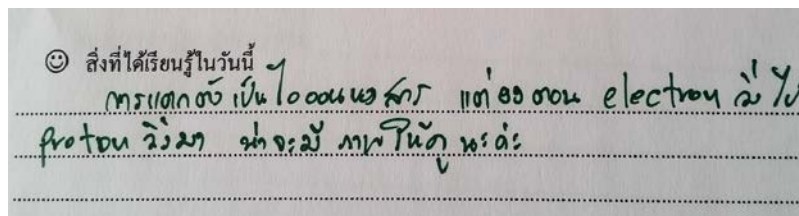 ☺ สิ่งที่ได้เรียนรู้ในวันนี้
การแตกตัวเป็นไอออนของสาร แต่ตอน electron วิ่งไป
proton วิ่งมา น่าจะมี ภาพให้ดู นะค่ะ